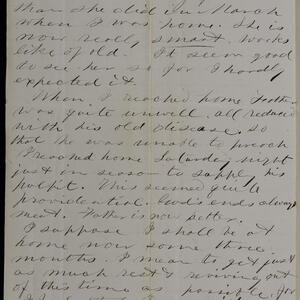 than she did in March
when I was home. She is
now really smart, works
like of old. It seem good
to see her so for I hardly
expected it.
When I reached home Father
was quite unwell, all reduced
with his old disease, so
that he was unable to preach
I reached home Saturday night
just in season to supply his
pulpit. This seemed quite
providential. God's ends always
meet. Father is now better.
I suppose I shall be at
home now some three
months. I mean to get just
as much rest & reviving out
of this time as possible, for